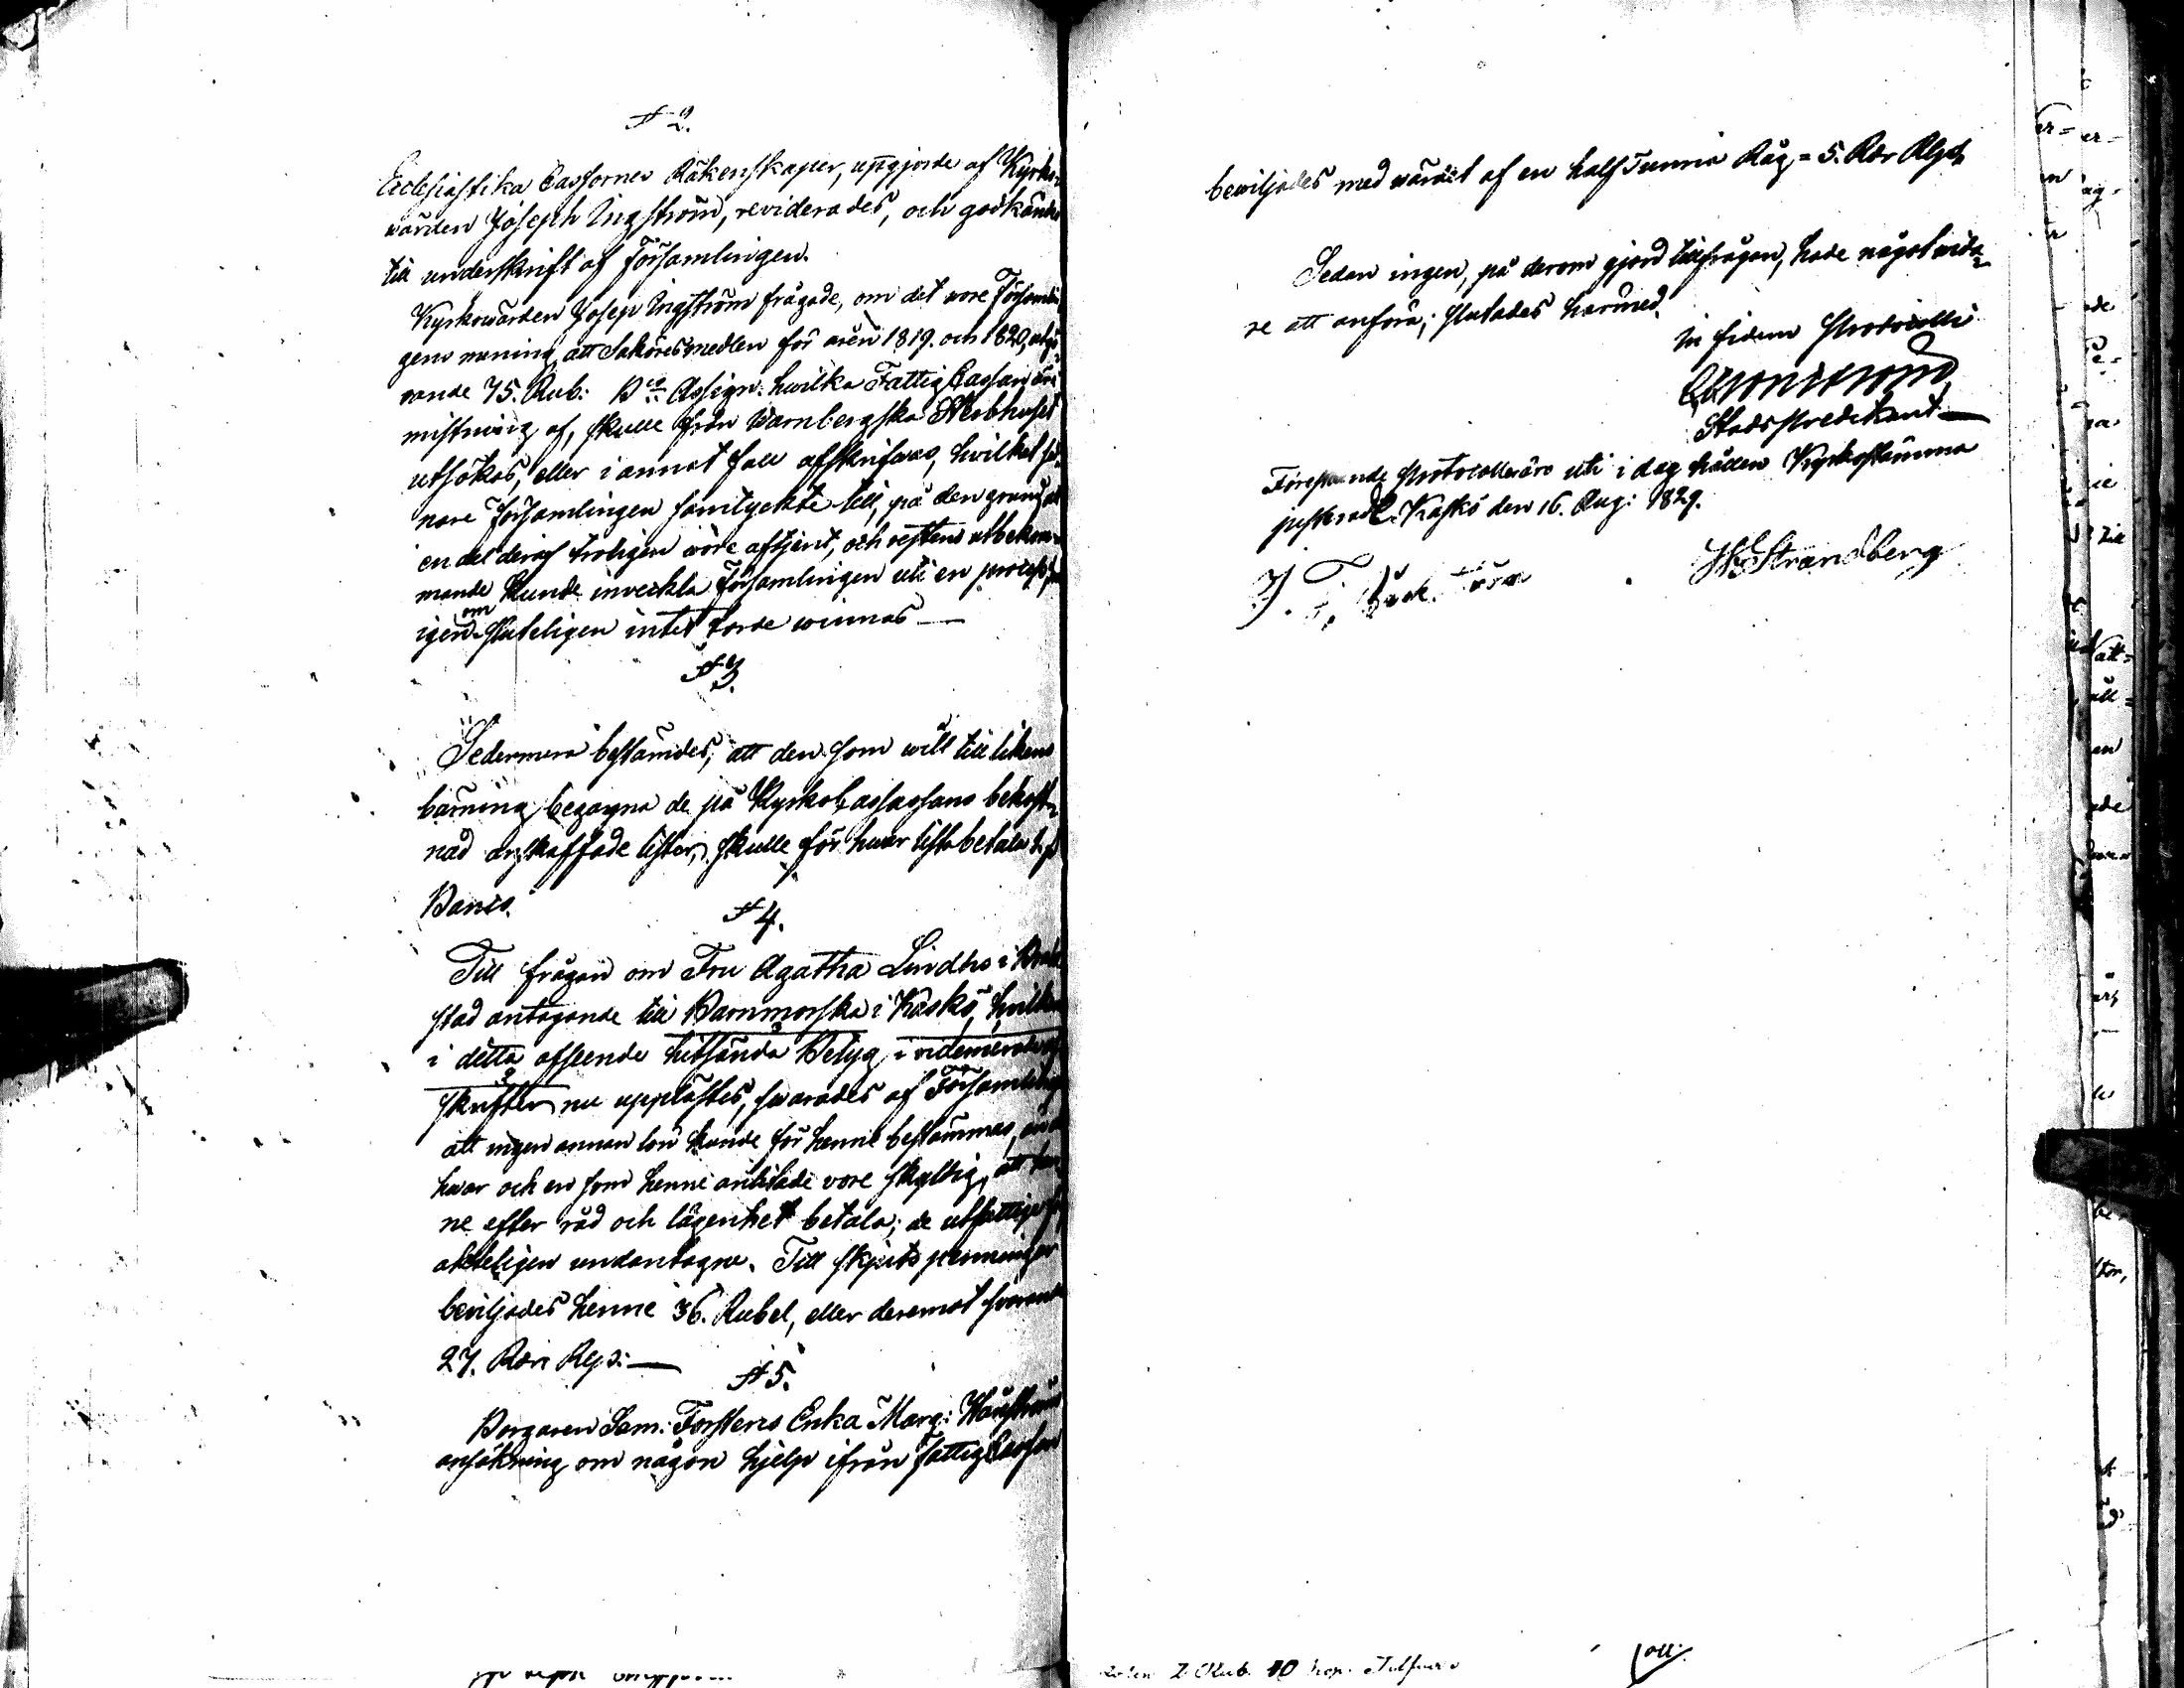 § 2.
Ecclesiastika Cassornes Räkenskaper, uppgjorde af Kyrko-
wärden Joseph Ingström, reviderades, och godkändes
till underskrift af Församlingen.
Kyrkowärden Josep Ingström frågade, om det vore Församlin
gens mening, att Saköresmedlen för åren 1819. och 1820, utgö
rande 75. Rub: B:co Assign: hwilka Fattig Cassan är i
mistning af, skulle från Warnbergska Sterbhuset
utsökas, eller i annat fall afskrifwas, hvilket sed
nare Församlingen samtyckte till, på den grund att
en del deraf troligen wore aftjent, och restens utbekom-
mande kunde inveckla Församlingen uti en process,
igenom Sluteligen intet torde winnas —
§ 3.
Sedermera bestämdes, att den som will till likens
bärning begagna de på Kyrko Cassassans bekost-
nad anskaffade lister, skulle för hwar lista betala
Banco.
§ 4.
Till frågan om Fru Agatha Lindhs i
stad antagande till Barnmorska i Kaskö, hvilken
i detta afseende hitsända Betyg i videmerade
skrifter nu upplästes, swarades af Församlingen
att ingen annan lön kunde för henne bestämmas, än
hwar och en som henne anlitade vore skyldig, att hen-
ne efter råd och lägenhet betala; de utfattige
akteligen undantagne. Till skjutspenningar
beviljades henne 36. Rubel, eller deremot svarande
27. Rdr Rgs: —
§ 5.
Borgaren Sam: Forstens Enka Marg:
ansökning om någon hjelp ifrån Fattig Cassan
bewiljades med wärdet af en half Tunna Råg = 5. Rdr Rgds
Sedan ingen, på derom gjord tillfrågan, hade något wida-
re att anföra; slutades härmed.
In fidem Protocolli
Stadspredikant —
Förestående Protocoll äro uti i dag hållen Kyrkostämma
justerade. Kaskö den 16. Aug: 1829.
Strandberg
J.
2. Rub. 10 kop.